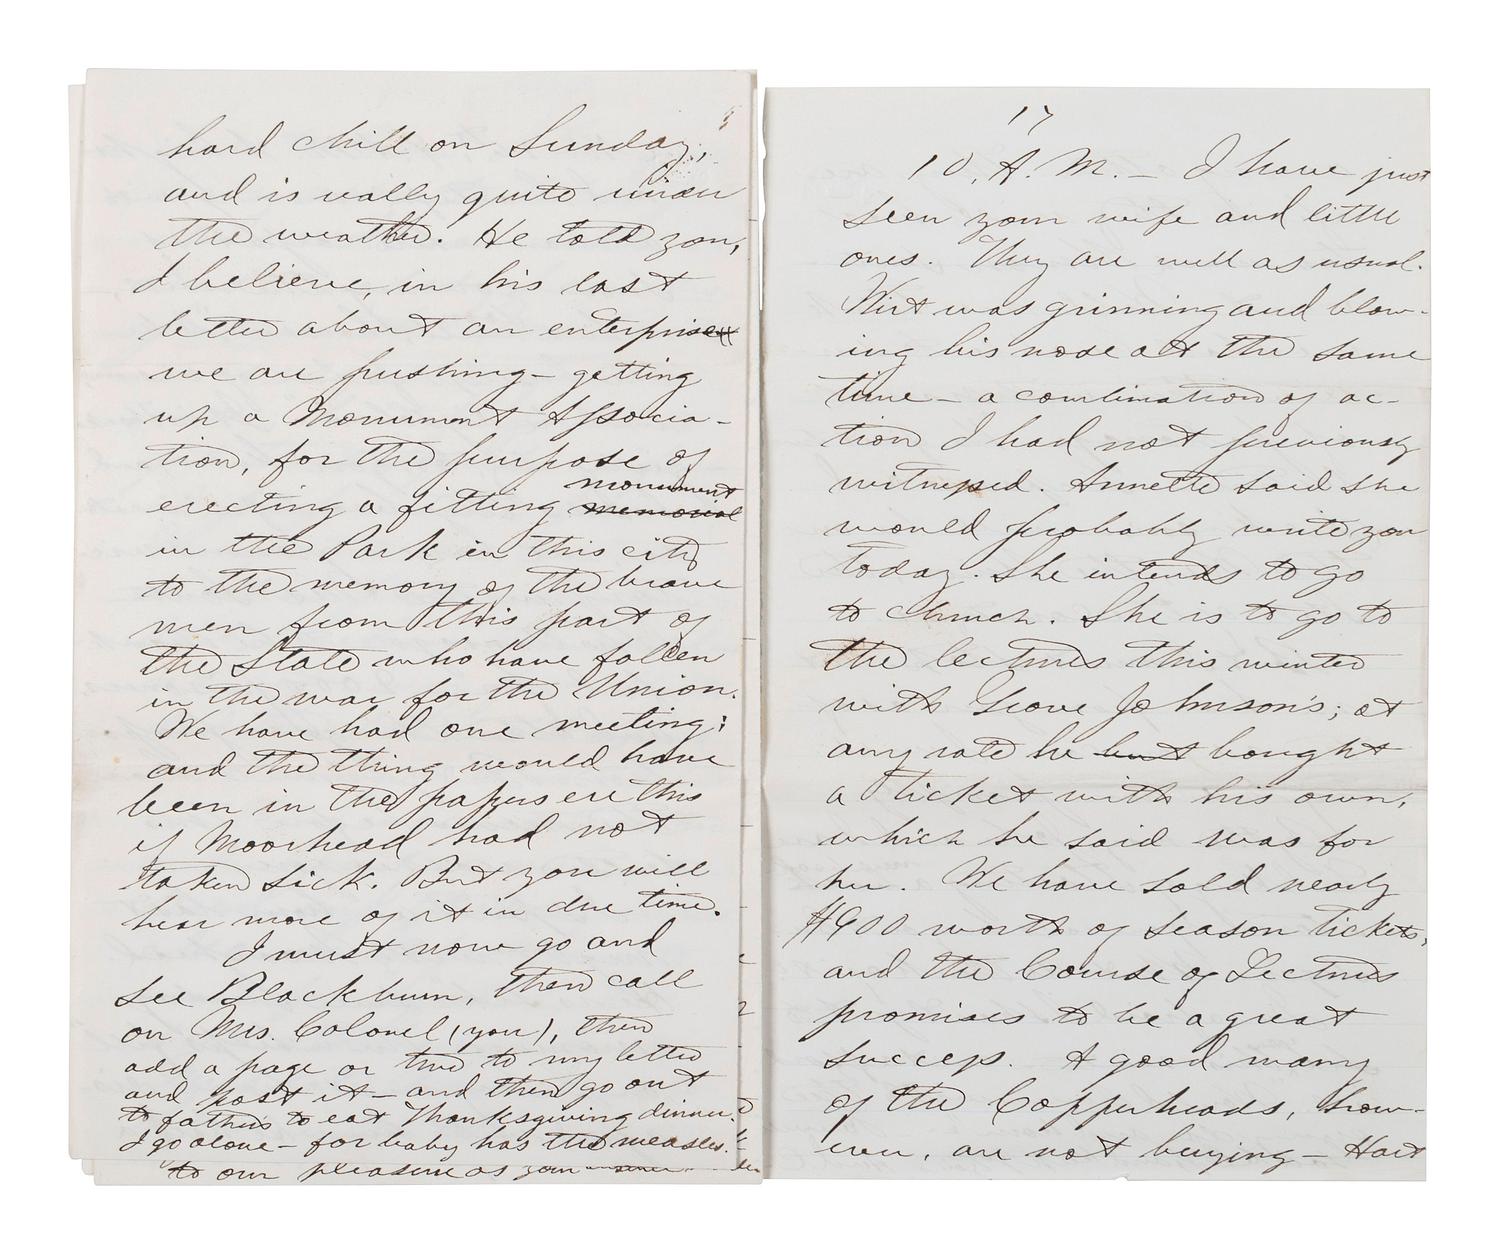 hard chill on Sunday,
and is really quite under
the weather. He told you,
I believe, in his last
letter about an enterprise
we are pushing – getting
up a Monument Associa-
tion, for the purpose of
erecting a fitting memorial monument
in the Park in this city
to the memory of the brave
men from this part of
the State who have fallen
in the war for the Union.
We have had one meeting;
and the thing would have
been in the papers ere this
if Moorhead had not
taken sick. But you will
hear more of it in due time.
I must now go and
see Blackburn, then call
on Mrs. Colonel (you), then
add a page or two to my letter
and post it – and then go out
to father's to eat Thanksgiving dinner.
I go alone – for baby has the measles.
to our pleasure as your
17
10, A. M. – I have just
seen your wife and little
ones. They are well as usual.
Wirt was grinning and blow-
ing his nose at the same
time – a combination of ac-
tion I had not previously
witnessed. Annette said she
would probably write you
today. She intends to go
to church. She is to go to
the lectures this winter
with Grove Johnson's; at
any rate he but bought
a ticket with his own,
which he said was for
her. We have sold nearly
$900 worth of season tickets,
and the Course of Lectures
promises to be a great
success. A good many
of the Copperheads, how-
ever, are not buying – Hart